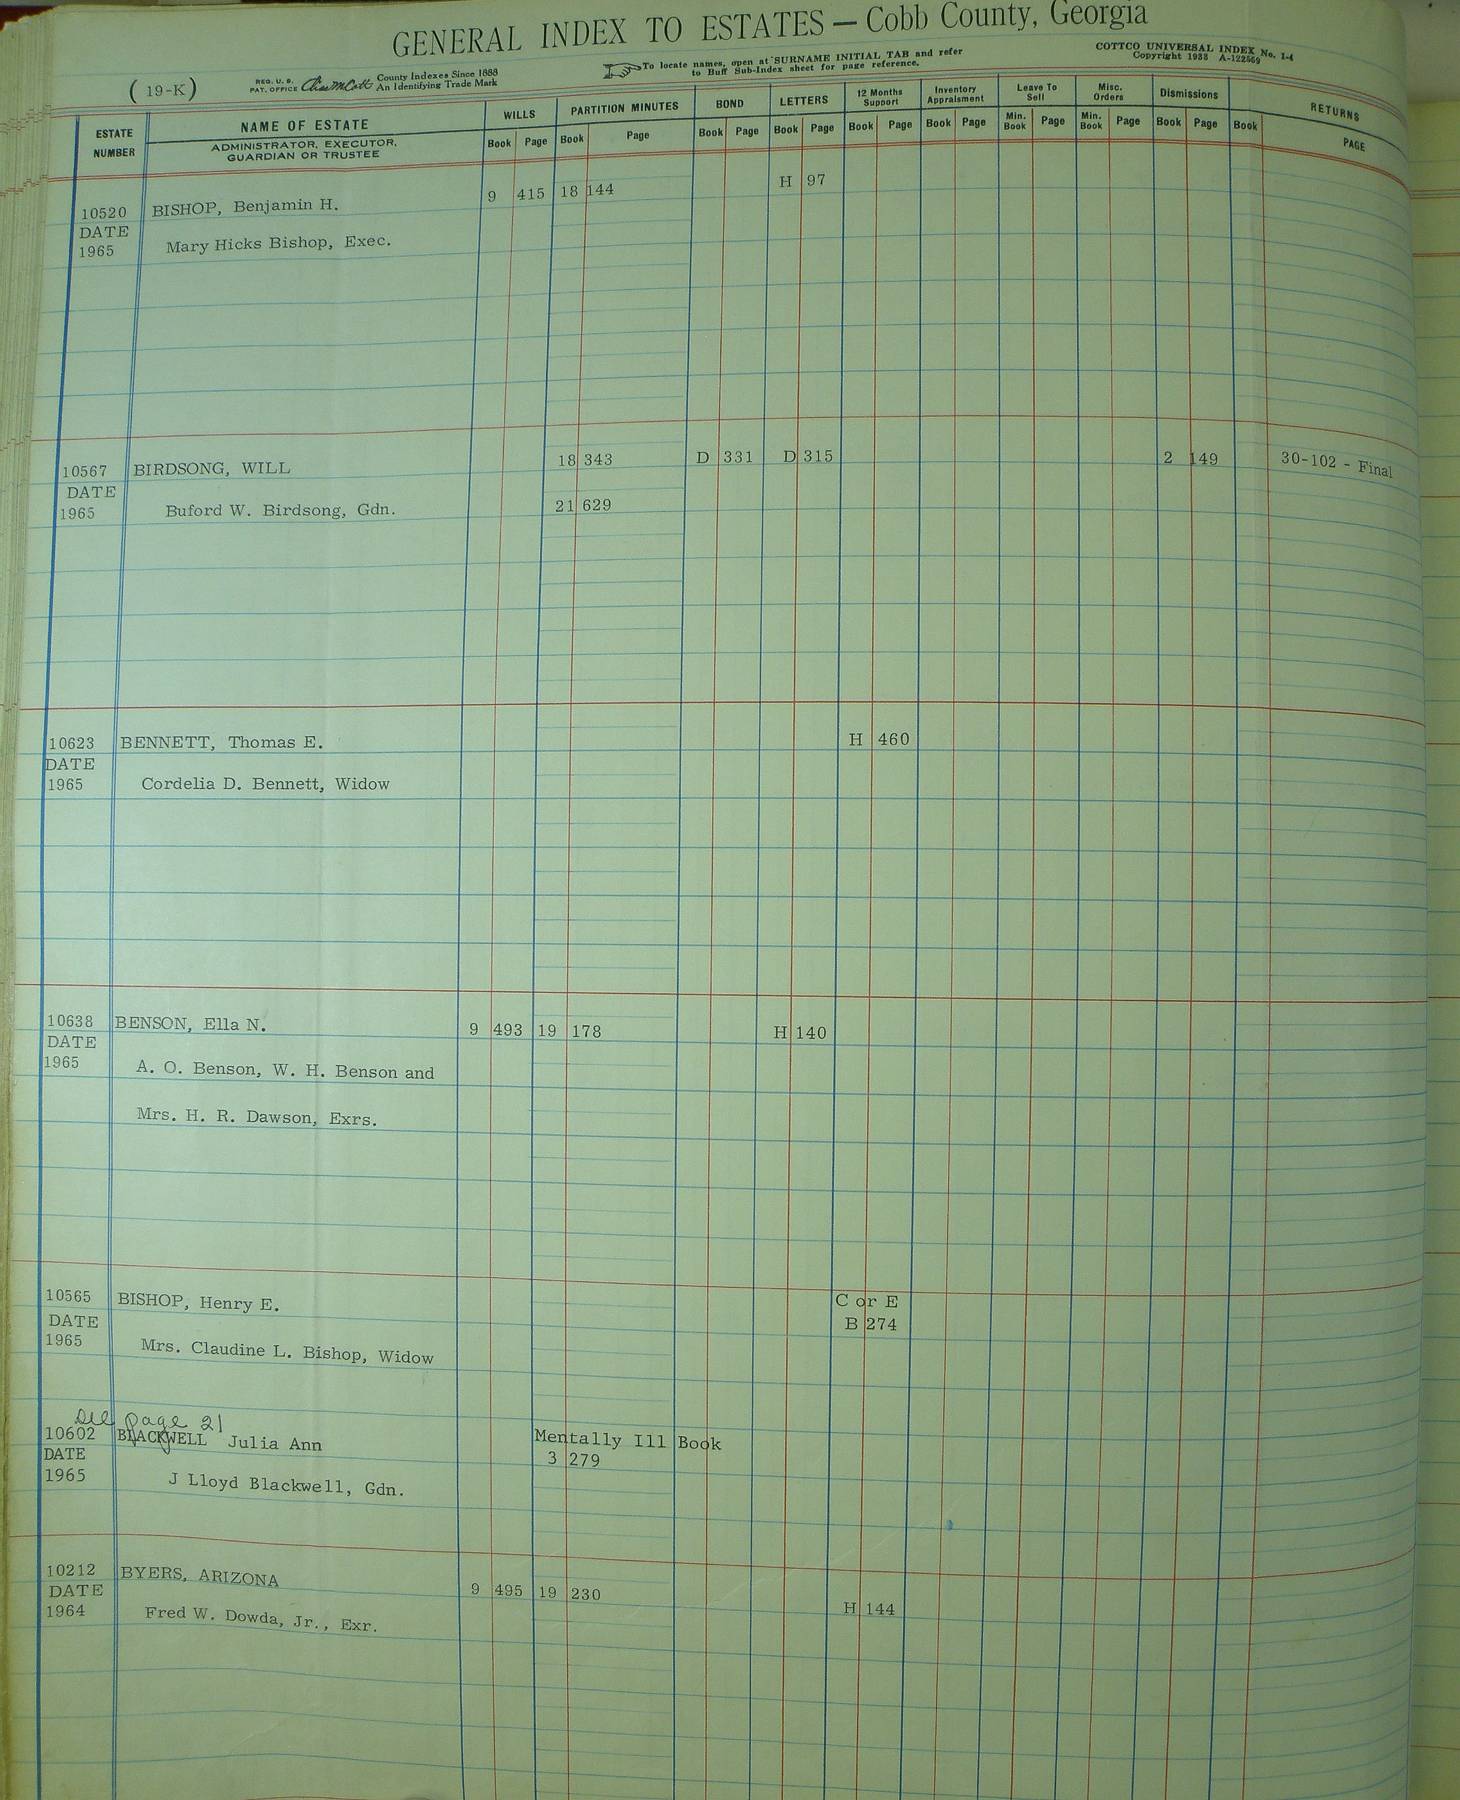 GENERAL INDEX TO ESTATES — Cobb County, Georgia
(19-K)
REG. U. S. PAT. OFFICE
County Indexes Since 1888
An Identifying Trade Mark
To locate names, open at SURNAME INITIAL TAB and refer
to Buff Sub-Index sheet for page reference.
COTTCO UNIVERSAL INDEX No. 1-4
Copyright 1933 A-122569
ESTATE NUMBER
NAME OF ESTATE
ADMINISTRATOR, EXECUTOR, GUARDIAN OR TRUSTEE
WILLS Book Page
PARTITION MINUTES Book Page
BOND Book Page
LETTERS Book Page
12 Months Support Book Page
Inventory Appraisment Book Page
Leave To Sell Min. Book Page
Misc. Orders Min. Book Page
Dismissions Book Page
RETURNS Book PAGE
10520 BISHOP, Benjamin H. 9 415 18 144 H 97
DATE
1965 Mary Hicks Bishop, Exec.
10567 BIRDSONG, WILL 18 343 D 331 D 315 2 149 30-102 - Final
DATE
1965 Buford W. Birdsong, Gdn. 21 629
10623 BENNETT, Thomas E. H 460
DATE
1965 Cordelia D. Bennett, Widow
10638 BENSON, Ella N. 9 493 19 178 H 140
DATE
1965 A. O. Benson, W. H. Benson and
Mrs. H. R. Dawson, Exrs.
10565 BISHOP, Henry E. C or E
DATE B 274
1965 Mrs. Claudine L. Bishop, Widow
See page 21
10602 BLACKWELL Julia Ann Mentally Ill Book
DATE 3 279
1965 J Lloyd Blackwell, Gdn.
10212 BYERS, ARIZONA 9 495 19 230
DATE H 144
1964 Fred W. Dowda, Jr., Exr.